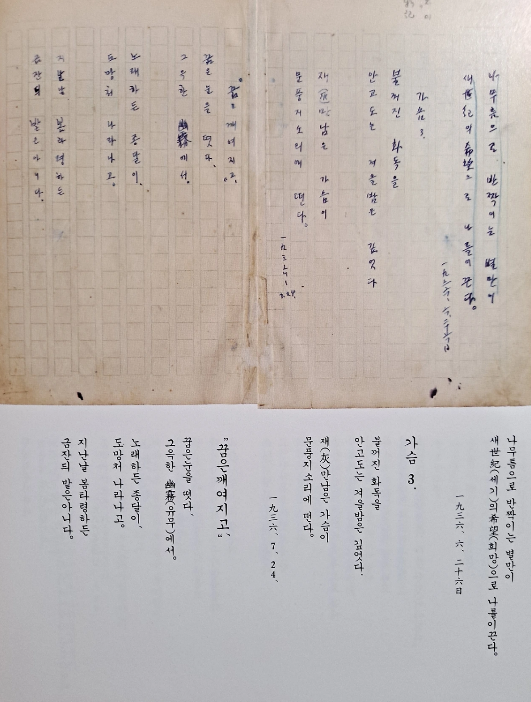 나무틈으로 반짝이는 별만이
새世紀의 希望으로 나를이끈다.
一九三六、六、二十六日
가슴 3.
불꺼진 화독을
안고도는 겨을밤은 깊엇다
재(灰)만남은 가슴이
문풍지소리에 떤다.
一九三六、7、24、
꿈은깨여지고
꿈은눈을 떳다.
그윽한 幽霧에서.
노래하든 종달이.
도망처 나라나고.
지난날 봄타령하든
금잔듸 밭은아니다.
나무틈으로 반짝이는 별만이
새世紀(세기)의希望(희망)으로 나를이끈다。
一九三六、六、二十六日
가슴 3.
불꺼진 화독을
안고도는 겨을밤은 깊엇다。
재(灰)만남은 가슴이
문풍지소리에 떤다。
一九三六、7、24、
"꿈은깨여지고"、
꿈은눈을 떳다。
그윽한 幽霧(유무)에서。
노래하든 종달이、
도망처 나라나고。
지난날 봄타령하든
금잔듸 밭은아니다。